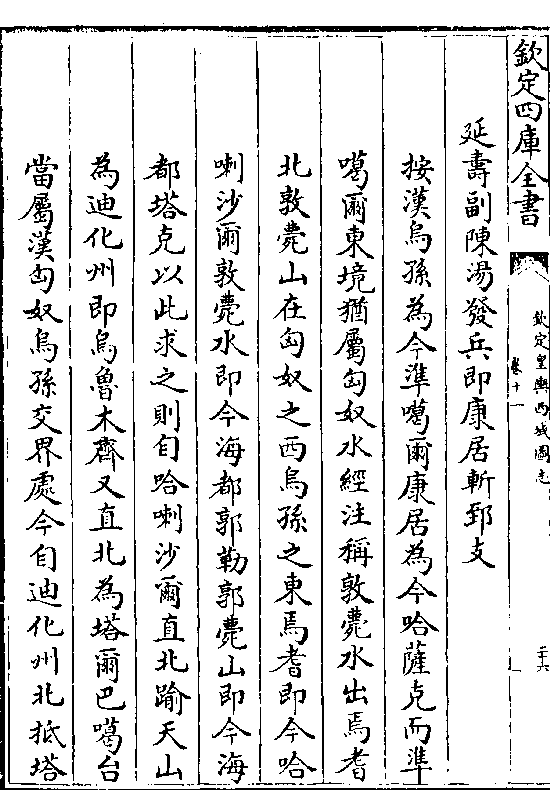 欽定四庫全書
欽定皇輿西域圖志
卷十一
二十六
延壽副陳湯發兵即康居斬郅支
按漢烏孫為今準噶爾康居為今哈薩克而準
噶爾東境猶屬匈奴水經注稱敦薨水出焉耆
北敦薨山在匈奴之西烏孫之東焉耆即今哈
喇沙爾敦薨水即今海都郭勒郭薨山即今海
都塔克以此求之則自哈喇沙爾直北踰天山
為迪化州即烏魯木齊又直北為塔爾巴噶台
當屬漢匈奴烏孫交界處今自迪化州北抵塔